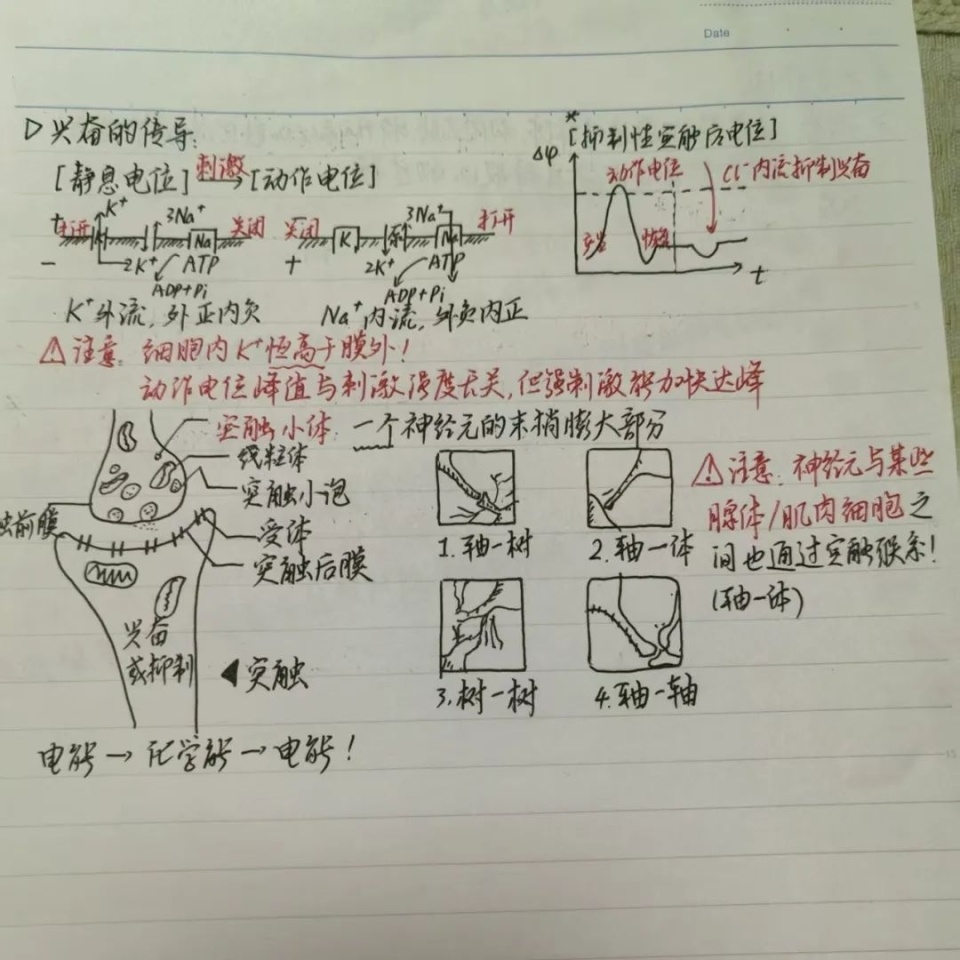 Date
▷兴奋的传导:
*[抑制性突触后电位]
[静息电位] 刺激→ [动作电位]
Δφ 动作电位 Cl⁻内流抑制兴奋
+ 打开 K⁺ 3Na⁺ Na 关闭
关闭 K 3Na⁺ 泵 Na 打开
- 2K⁺ ATP
+ 2K⁺ ATP
ADP+Pi
ADP+Pi
t
K⁺外流,外正内负
Na⁺内流,外负内正
⚠注意:细胞内K⁺恒高于膜外!
动作电位峰值与刺激强度无关,但强刺激能加快达峰
突触小体:一个神经元的末梢膨大部分
线粒体
突触小泡
触前膜
受体
突触后膜
兴奋
或抑制
◀突触
1.轴-树
2.轴-体
3.树-树
4.轴-轴
⚠注意:神经元与某些
腺体/肌肉细胞之
间也通过突触联系!
(轴-体)
电能→化学能→电能!